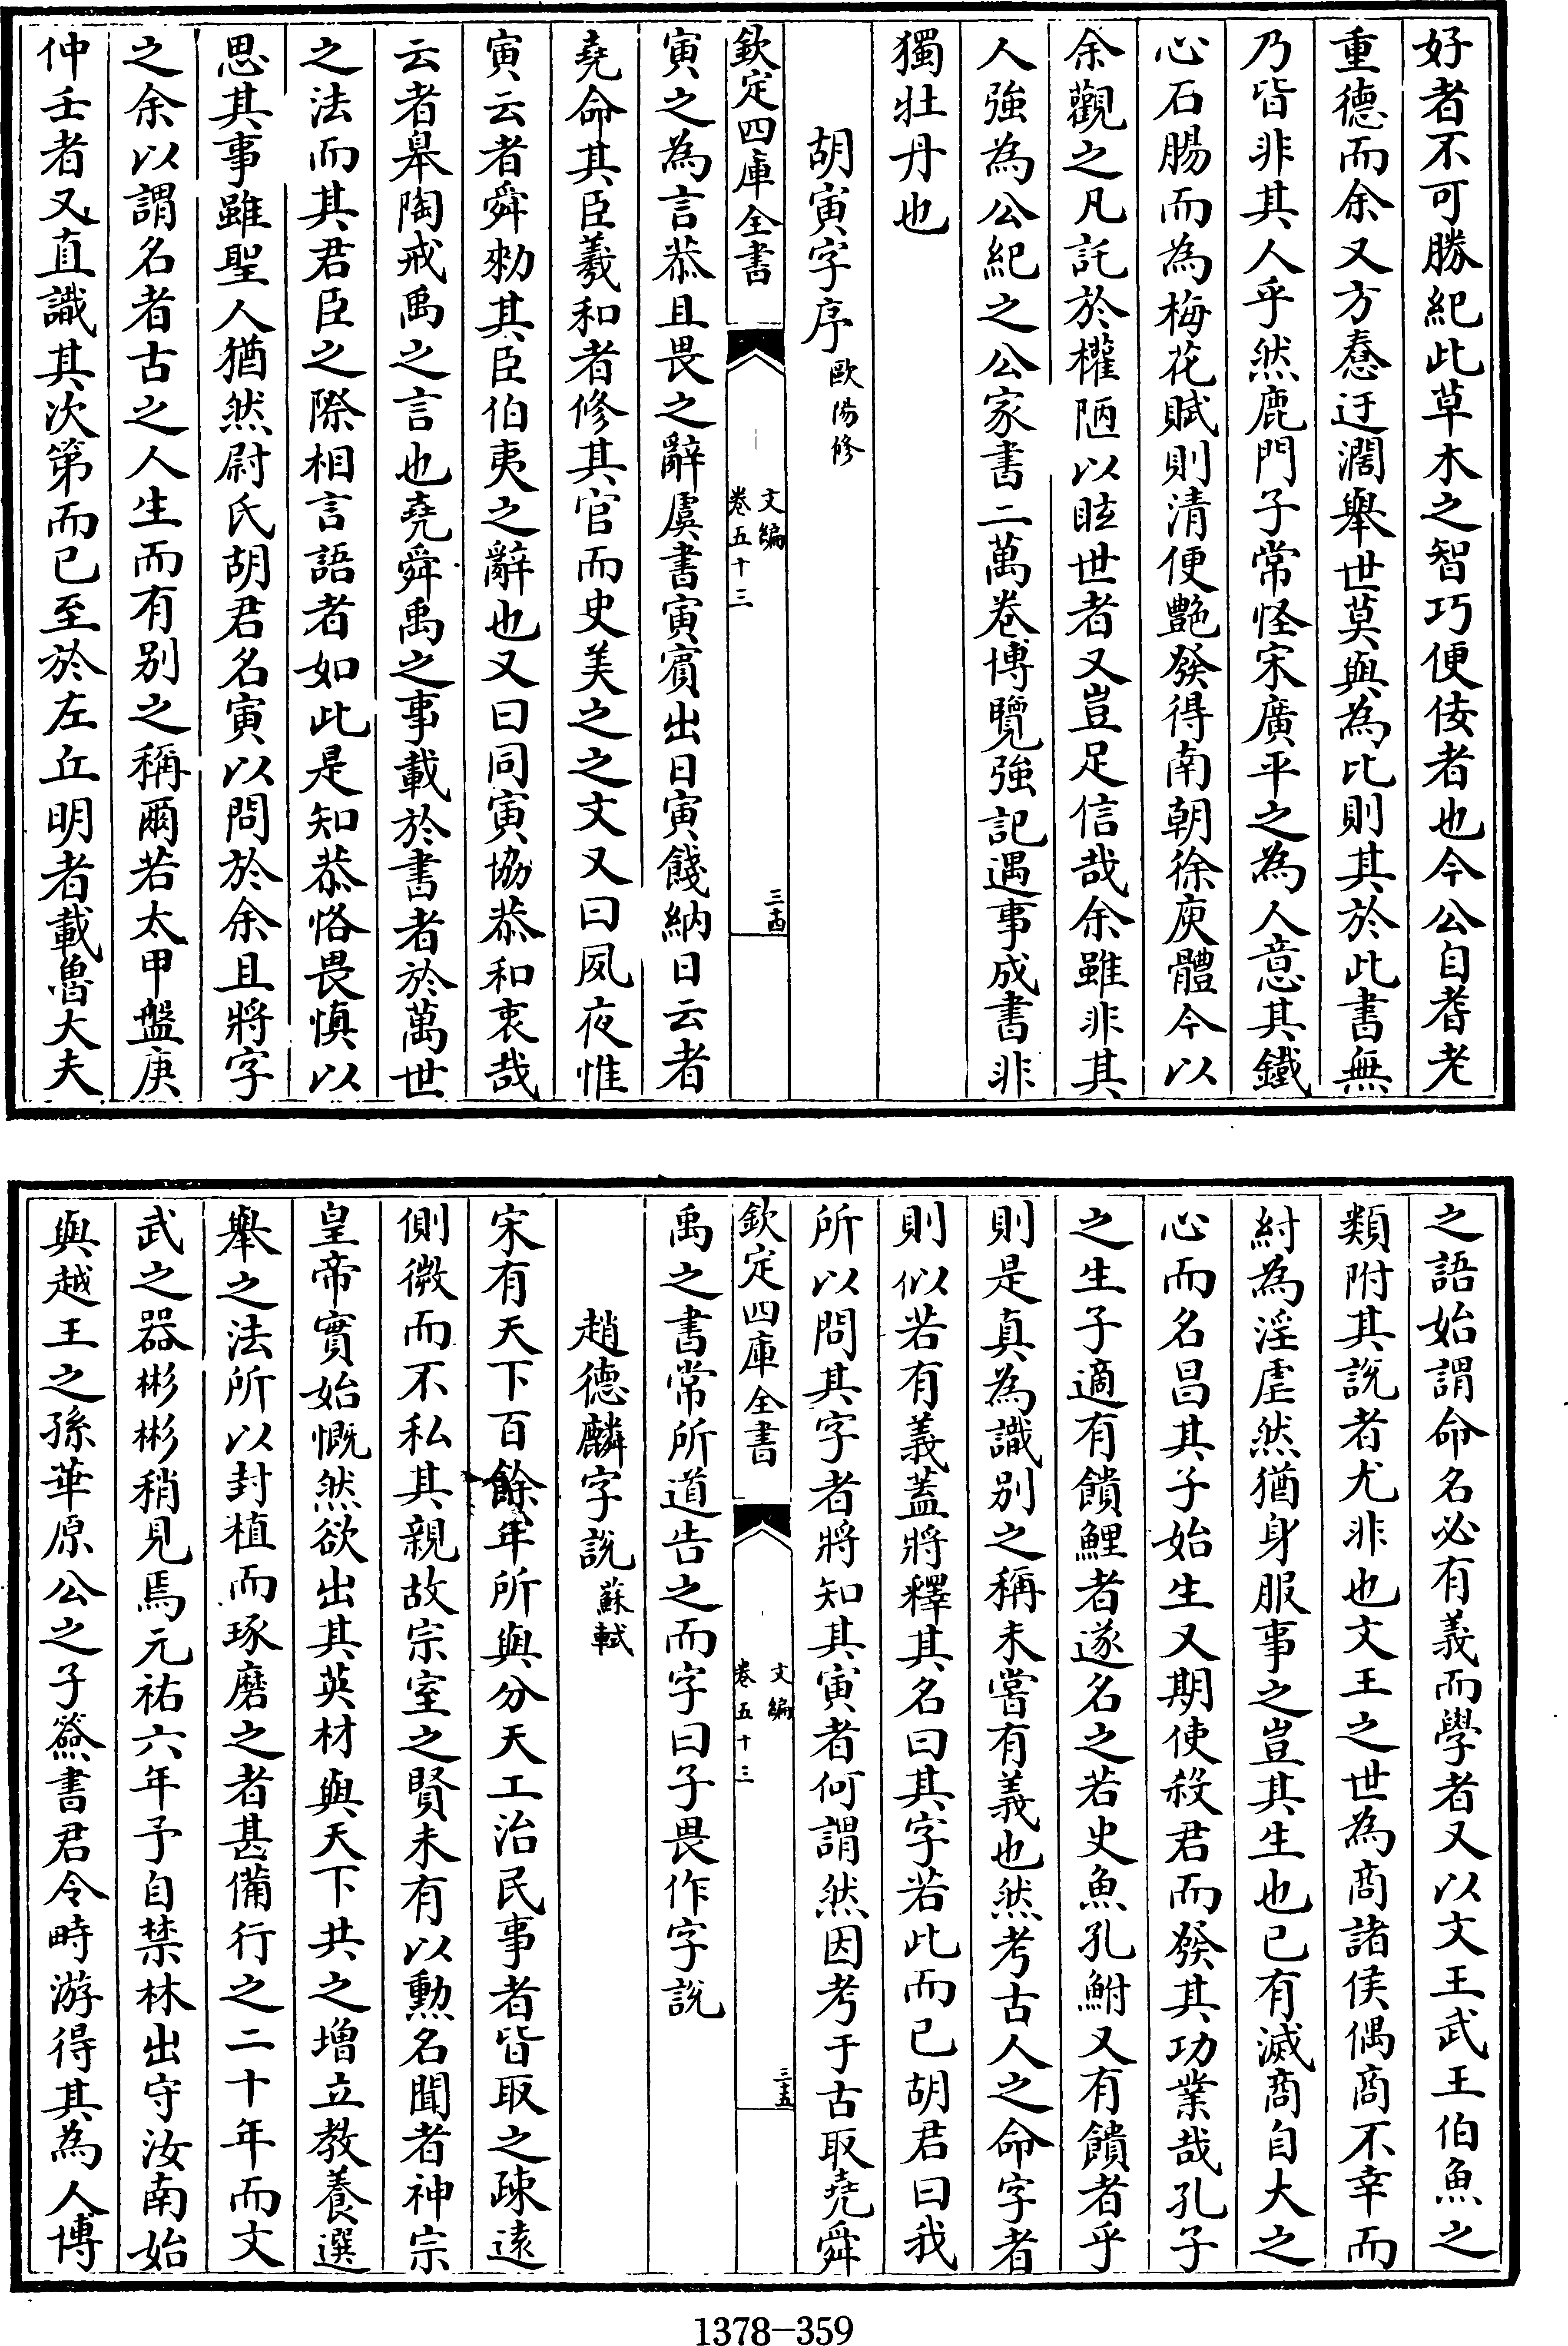 好者不可勝紀此草木之智巧便佞者也今公自耆老
重德而余又方惷迂濶舉世莫與為比則其於此書無
乃皆非其人乎然鹿門子常怪宋廣平之為人意其鐵
心石腸而為梅花賦則清便艷發得南朝徐庾體今以
余觀之凡託於權陋以眩世者又豈足信哉余雖非其
人強為公紀之公家書二萬卷博覽強記遇事成書非
獨牡丹也
胡寅字序歐陽修
欽定四庫全書
文編
卷五十三
三十四
寅之為言恭且畏之辭虞書寅賓出日寅餞納日云者
堯命其臣羲和者修其官而史美之之文又曰夙夜惟
寅云者舜勑其臣伯夷之辭也又曰同寅協恭和衷哉
云者臯陶戒禹之言也堯舜禹之事載於書者於萬世
之法而其君臣之際相言語者如此是知恭恪畏慎以
思其事雖聖人猶然尉氏胡君名寅以問於余且將字
之余以謂名者古之人生而有别之稱爾若太甲盤庚
仲壬者又直識其次第而已至於左丘明者載魯大夫
之語始謂命名必有義而學者又以文王武王伯魚之
類附其說者尤非也文王之世為商諸侯偶商不幸而
紂為淫虐然猶身服事之豈其生也已有滅商自大之
心而名昌其子始生又期使殺君而發其功業哉孔子
之生子適有饋鯉者遂名之若史魚孔鮒又有饋者乎
則是真為識别之稱未嘗有義也然考古人之命字者
則似若有義蓋將釋其名曰其字若此而已胡君曰我
所以問其字者將知其寅者何謂然因考于古取堯舜
欽定四庫全書
文編
卷五十三
三十五
禹之書常所道告之而字曰子畏作字說
趙德麟字說蘇軾
宋有天下百餘年所與分天工治民事者皆取之疎逺
側微而不私其親故宗室之賢未有以勲名聞者神宗
皇帝實始慨然欲出其英材與天下共之增立教養選
舉之法所以封植而琢磨之者甚備行之二十年而文
武之器彬彬稍見焉元祐六年予自禁林出守汝南始
與越王之孫華原公之子簽書君令時游得其為人博
1378-359